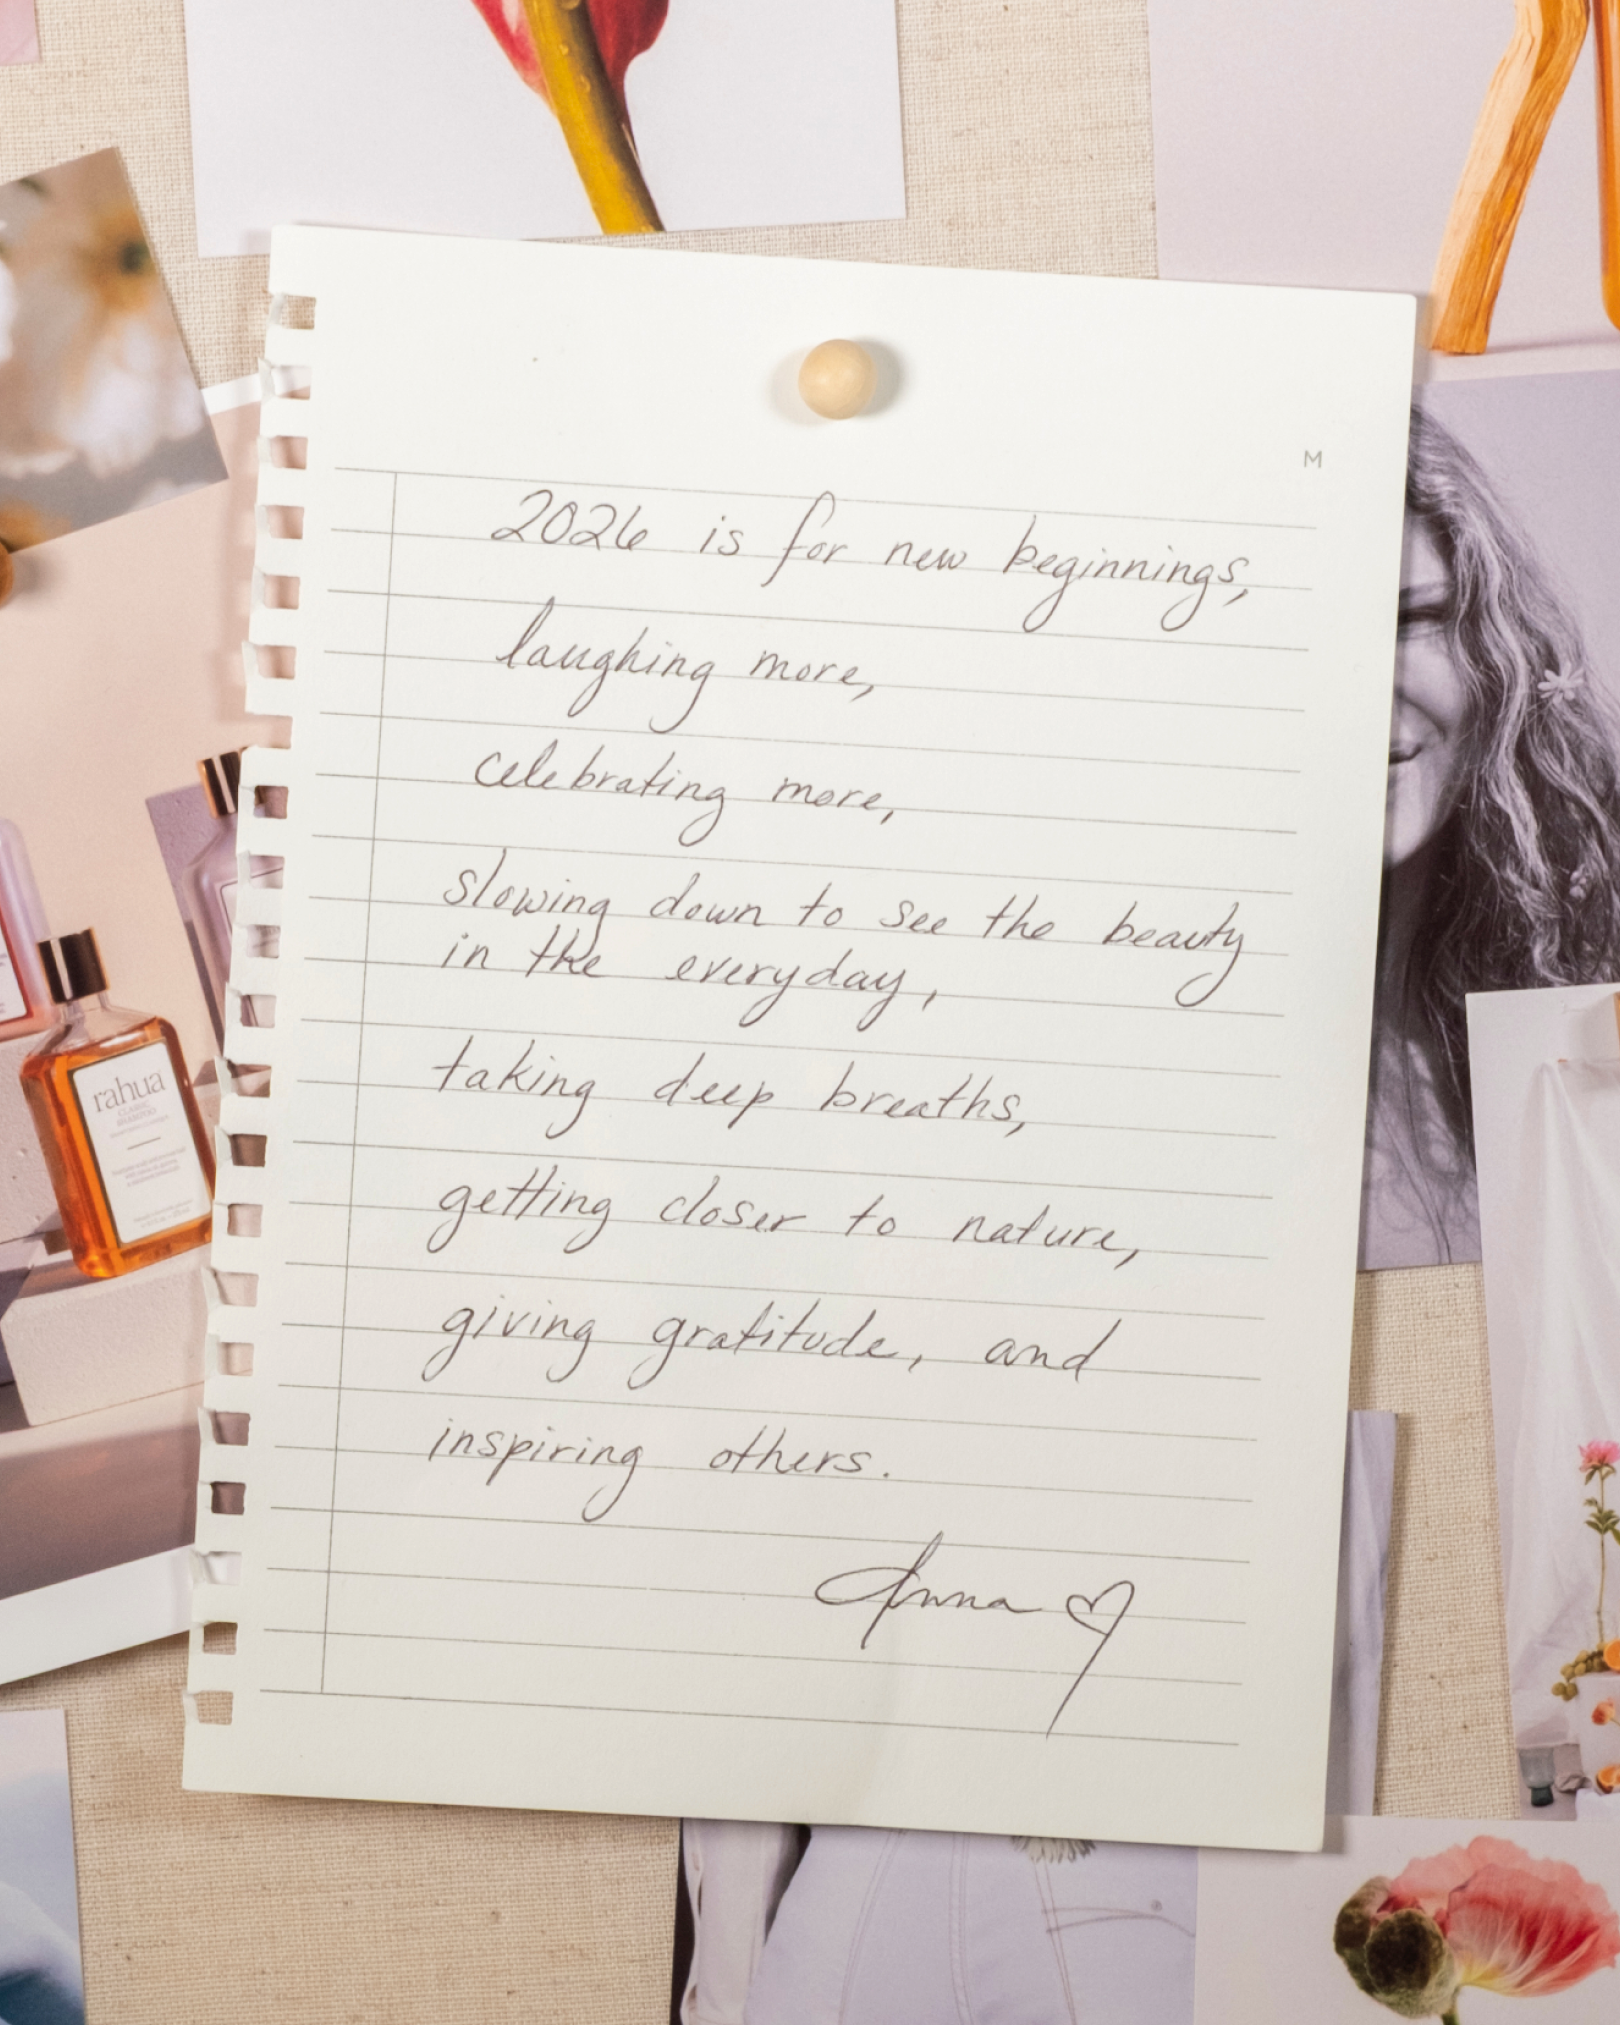 M
2026 is for new beginnings,
laughing more,
celebrating more,
slowing down to see the beauty
in the everyday,
taking deep breaths,
getting closer to nature,
giving gratitude, and
inspiring others.
Anna ♡
rahua
CLASSIC
SHAMPOO